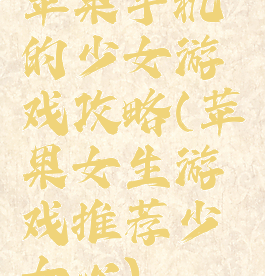 苹果手机
的少女游
戏攻略(苹
果女生游
戏推荐少